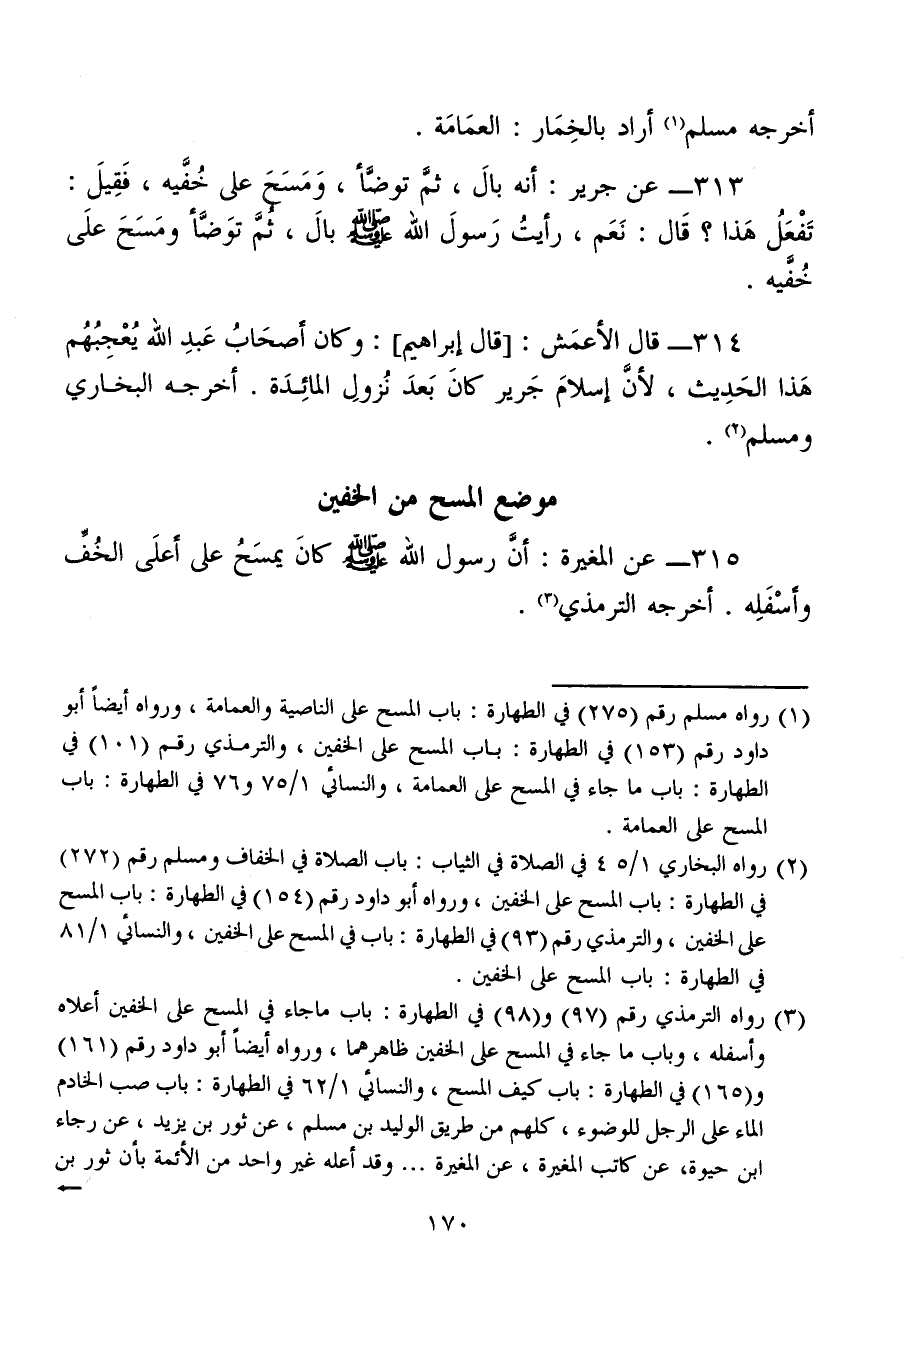 أخرجه مسلم(١) أراد بالخِمَار : العمَامَة .
٣١٣ــ عن جرير : أنه بالَ ، ثمَّ توضَّأ ، وَمَسَحَ على خُفَّيه ، فَقِيلَ :
تَفْعَلُ هَذا ؟ قَال : نَعَم ، رأيتُ رَسولَ الله ﷺ بالَ ، ثُمَّ توَضَّأ ومَسَحَ علَى
خُفَّيه .
٣١٤ــ قال الأعمَش : [قال إبراهيم] : وكان أصحَابُ عَبدِ الله يُعْجِبُهُم
هَذا الحَدِيث ، لأنَّ إسلامَ جَرير كانَ بَعدَ نُزولِ المائِدَة . أخرجـه البخاري
ومسلم(٢) .
موضع المسح من الخفين
٣١٥ــ عن المغيرة : أنَّ رسول الله ﷺ كانَ يمسَحُ على أعلَى الخُفِّ
وأَسْفَلِه . أخرجه الترمذي(٣) .
(١) رواه مسلم رقم (٢٧٥) في الطهارة : باب المسح على الناصية والعمامة ، ورواه أيضاً أبو
داود رقم (١٥٣) في الطهارة : بـاب المسح على الخفين ، والترمـذي رقـم (١٠١) في
الطهارة : باب ما جاء في المسح على العمامة ، والنسائي ٧٥/١ و٧٦ في الطهارة : باب
المسح على العمامة .
(٢) رواه البخاري ٤٥/١ ٤ في الصلاة في الثياب : باب الصلاة في الخفاف ومسلم رقم (٢٧٢)
في الطهارة : باب المسح على الخفين ، ورواه أبو داود رقم (١٥٤) في الطهارة : باب المسح
على الخفين ، والترمذي رقم (٩٣) في الطهارة : باب في المسح على الخفين ، والنسائي ٨١/١
في الطهارة : باب المسح على الخفين .
(٣) رواه الترمذي رقم (٩٧) و(٩٨) في الطهارة : باب ماجاء في المسح على الخفين أعلاه
وأسفله ، وباب ما جاء في المسح على الخفين ظاهرهما ، ورواه أيضاً أبو داود رقم (١٦١)
و(١٦٥) في الطهارة : باب كيف المسح ، والنسائي ٦٢/١ في الطهارة : باب صب الخادم
الماء على الرجل للوضوء ، كلهم من طريق الوليد بن مسلم ، عن ثور بن يزيد ، عن رجاء
ابن حيوة، عن كاتب المغيرة ، عن المغيرة ... وقد أعله غير واحد من الأئمة بأن ثور بن
١٧٠